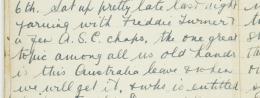 6th. Sat up pretty late last night
yarning with Freddie Turner &
a few A.S.C chaps, the one great
topic among all us old hands
is this Australia leave & when
we will get it, & who is entitled